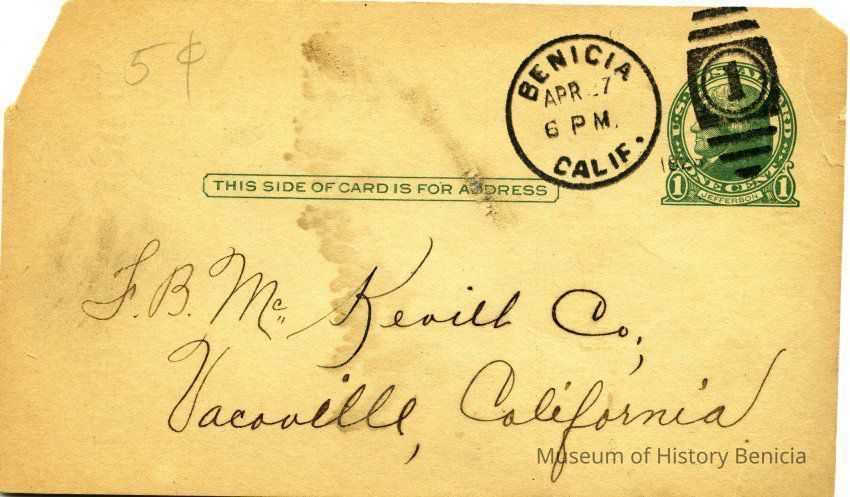 5¢
BENICIA
APR 27
6 PM.
CALIF.
1
U.S. POSTAL CARD
ONE CENT
1 JEFFERSON 1
THIS SIDE OF CARD IS FOR ADDRESS
F. B. Mc Kevitt Co,
Vacaville, California
Museum of History Benicia